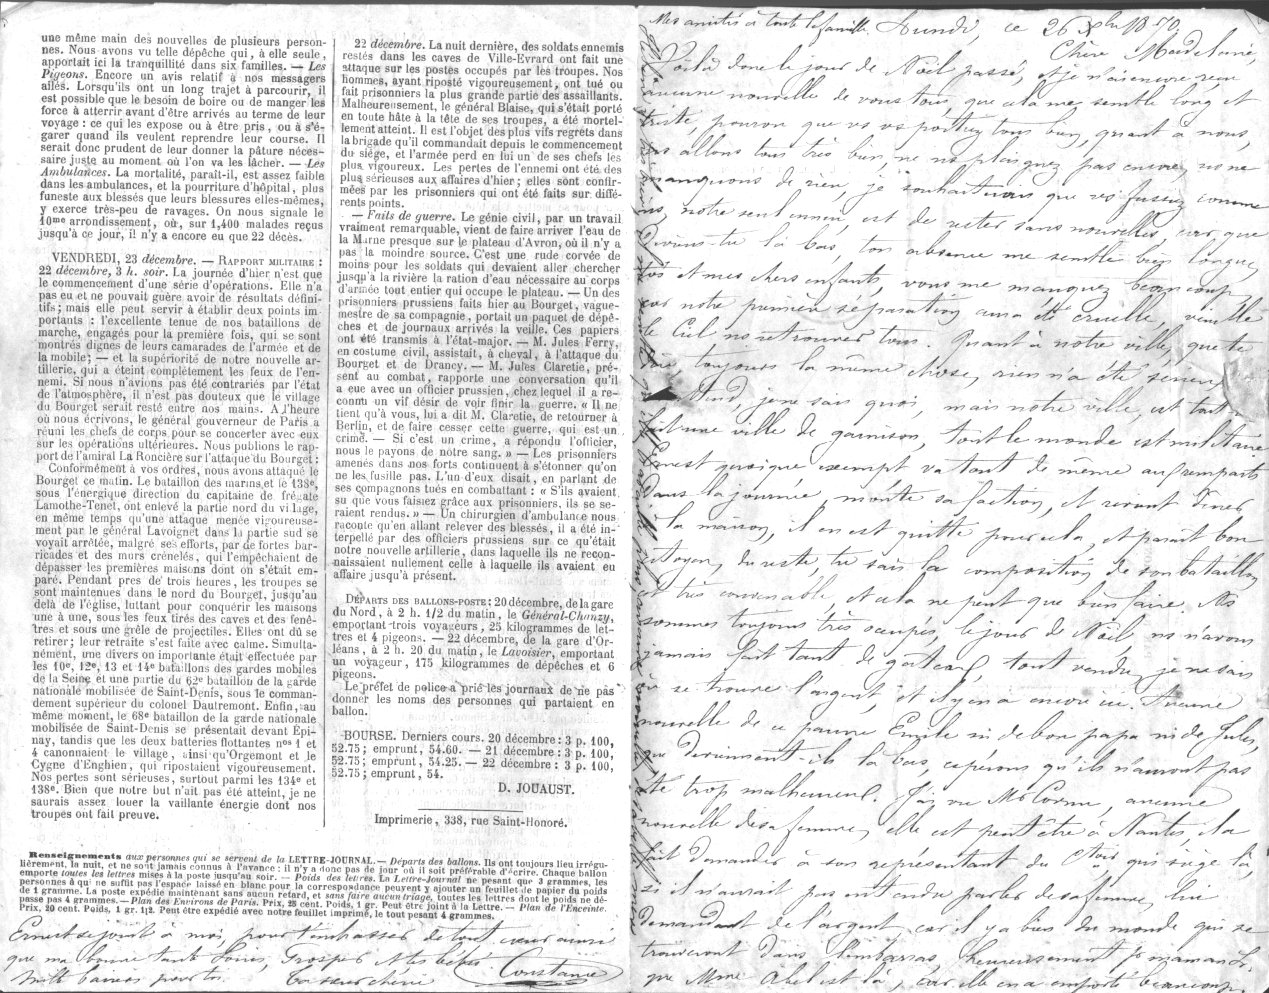 une même main des nouvelles de plusieurs person-
nes. Nous avons vu telle dépêche qui, à elle seule,
apportait ici la tranquillité dans six familles. — Les
Pigeons. Encore un avis relatif à nos messagers
ailés. Lorsqu'ils ont un long trajet à parcourir, il
est possible que le besoin de boire ou de manger les
force à atterrir avant d'être arrivés au terme de leur
voyage : ce qui les expose ou à être pris, ou à s'é-
garer quand ils veulent reprendre leur course. Il
serait donc prudent de leur donner la pâture néces-
saire juste au moment où l'on va les lâcher. — Les
Ambulances. La mortalité, paraît-il, est assez faible
dans les ambulances, et la pourriture d'hôpital, plus
funeste aux blessés que leurs blessures elles-mêmes,
y exerce très-peu de ravages. On nous signale le
10me arrondissement, où, sur 1,400 malades reçus
jusqu'à ce jour, il n'y a encore eu que 22 décès.
VENDREDI, 23 décembre. — RAPPORT MILITAIRE :
22 décembre, 3 h. soir. La journée d'hier n'est que
le commencement d'une série d'opérations. Elle n'a
pas eu et ne pouvait guère avoir de résultats défini-
tifs; mais elle peut servir à établir deux points im-
portants : l'excellente tenue de nos bataillons de
marche, engagés pour la première fois, qui se sont
montrés dignes de leurs camarades de l'armée et de
la mobile; — et la supériorité de notre nouvelle ar-
tillerie, qui a éteint complétement les feux de l'en-
nemi. Si nous n'avions pas été contrariés par l'état
de l'atmosphère, il n'est pas douteux que le village
du Bourget serait resté entre nos mains. A l'heure
où nous écrivons, le général gouverneur de Paris a
réuni les chefs de corps pour se concerter avec eux
sur les opérations ultérieures. Nous publions le rap-
port de l'amiral La Roncière sur l'attaque du Bourget :
Conformément à vos ordres, nous avons attaqué le
Bourget ce matin. Le bataillon des marins et le 138e,
sous l'énergique direction du capitaine de frégate
Lamothe-Tenet, ont enlevé la partie nord du village,
en même temps qu'une attaque menée vigoureuse-
ment par le général Lavoignet dans la partie sud se
voyait arrêtée, malgré ses efforts, par de fortes bar-
ricades et des murs crénelés, qui l'empêchaient de
dépasser les premières maisons dont on s'était em-
paré. Pendant près de trois heures, les troupes se
sont maintenues dans le nord du Bourget, jusqu'au
delà de l'église, luttant pour conquérir les maisons
une à une, sous les feux tirés des caves et des fenê-
tres et sous une grêle de projectiles. Elles ont dû se
retirer; leur retraite s'est faite avec calme. Simulta-
nément, une diversion importante était effectuée par
les 10e, 12e, 13 et 14e bataillons des gardes mobiles
de la Seine et une partie du 62e bataillon de la garde
nationale mobilisée de Saint-Denis, sous le comman-
dement supérieur du colonel Dautremont. Enfin, au
même moment, le 68e bataillon de la garde nationale
mobilisée de Saint-Denis se présentait devant Épi-
nay, tandis que les deux batteries flottantes nos 1 et
4 canonnaient le village, ainsi qu'Orgemont et le
Cygne d'Enghien, qui ripostaient vigoureusement.
Nos pertes sont sérieuses, surtout parmi les 134e et
138e. Bien que notre but n'ait pas été atteint, je ne
saurais assez louer la vaillante énergie dont nos
troupes ont fait preuve.
22 décembre. La nuit dernière, des soldats ennemis
restés dans les caves de Ville-Evrard ont fait une
attaque sur les postes occupés par les troupes. Nos
hommes, ayant riposté vigoureusement, ont tué ou
fait prisonniers la plus grande partie des assaillants.
Malheureusement, le général Blaise, qui s'était porté
en toute hâte à la tête de ses troupes, a été mortel-
lement atteint. Il est l'objet des plus vifs regrets dans
la brigade qu'il commandait depuis le commencement
du siége, et l'armée perd en lui un de ses chefs les
plus vigoureux. Les pertes de l'ennemi ont été des
plus sérieuses aux affaires d'hier; elles sont confir-
mées par les prisonniers qui ont été faits sur diffé-
rents points.
— Faits de guerre. Le génie civil, par un travail
vraiment remarquable, vient de faire arriver l'eau de
la Marne presque sur le plateau d'Avron, où il n'y a
pas la moindre source. C'est une rude corvée de
moins pour les soldats qui devaient aller chercher
jusqu'à la rivière la ration d'eau nécessaire au corps
d'armée tout entier qui occupe le plateau. — Un des
prisonniers prussiens faits hier au Bourget, vague-
mestre de sa compagnie, portait un paquet de dépê-
ches et de journaux arrivés la veille. Ces papiers
ont été transmis à l'état-major. — M. Jules Ferry,
en costume civil, assistait, à cheval, à l'attaque du
Bourget et de Drancy. — M. Jules Claretie, pré-
sent au combat, rapporte une conversation qu'il
a eue avec un officier prussien, chez lequel il a re-
connu un vif désir de voir finir la guerre. « Il ne
tient qu'à vous, lui a dit M. Claretie, de retourner à
Berlin, et de faire cesser cette guerre, qui est un
crime. — Si c'est un crime, a répondu l'officier,
nous le payons de notre sang. » — Les prisonniers
amenés dans nos forts continuent à s'étonner qu'on
ne les fusille pas. L'un d'eux disait, en parlant de
ses compagnons tués en combattant : « S'ils avaient
su que vous faisiez grâce aux prisonniers, ils se se-
raient rendus. » — Un chirurgien d'ambulance nous
raconte qu'en allant relever des blessés, il a été in-
terpellé par des officiers prussiens sur ce qu'était
notre nouvelle artillerie, dans laquelle ils ne recon-
naissaient nullement celle à laquelle ils avaient eu
affaire jusqu'à présent.
DÉPARTS DES BALLONS-POSTE : 20 décembre, de la gare
du Nord, à 2 h. 1/2 du matin, le Général-Chanzy,
emportant trois voyageurs, 25 kilogrammes de let-
tres et 4 pigeons. — 22 décembre, de la gare d'Or-
léans, à 2 h. 20 du matin, le Lavoisier, emportant
un voyageur, 175 kilogrammes de dépêches et 6
pigeons.
Le préfet de police a prié les journaux de ne pas
donner les noms des personnes qui partaient en
ballon.
BOURSE. Derniers cours. 20 décembre : 3 p. 100,
52.75; emprunt, 54.60. — 21 décembre : 3 p. 100,
52.75; emprunt, 54.25. — 22 décembre : 3 p. 100,
52.75; emprunt, 54.
D. JOUAUST.
Imprimerie, 338, rue Saint-Honoré.
Renseignements aux personnes qui se servent de la LETTRE-JOURNAL. — Départs des ballons. Ils ont toujours lieu irrégu-
lièrement, la nuit, et ne sont jamais connus à l'avance : il n'y a donc pas de jour où il soit préférable d'écrire. Chaque ballon
emporte toutes les lettres mises à la poste jusqu'au soir. — Poids des lettres. La Lettre-Journal ne pesant que 3 grammes, les
personnes à qui ne suffit pas l'espace laissé en blanc pour la correspondance peuvent y ajouter un feuillet de papier du poids
de 1 gramme. La poste expédie maintenant sans aucun retard, et sans faire aucun triage, toutes les lettres dont le poids ne dé-
passe pas 4 grammes. — Plan des Environs de Paris. Prix, 25 cent. Poids, 1 gr. Peut être joint à la Lettre. — Plan de l'Enceinte.
Prix, 20 cent. Poids, 1 gr. 1/2. Peut être expédié avec notre feuillet imprimé, le tout pesant 4 grammes.
Ernest se joint à moi pour t'embrasser de tout cœur ainsi
que ma bonne tante Prosper & les bébés
Mille baisers pour toi Ta sœur chérie Constance
Mes amitiés à toute la famille Lundi, ce 26 Xbre 1870,
Chère Madeleine,
Voilà donc le jour de Noël passé, et je n'ai encore reçu
aucune nouvelle de vous tous, que cela me semble long et
triste, pourvu que vs vs portiez tous bien, quant à nous,
ns allons tous très bien, ne ns plaignez pas encore, ns ne
manquons de rien, je souhaiterais que vs fussiez comme
ns, notre seul ennui, est de rester sans nouvelles, car que
deviens-tu là bas, ton absence me semble bien longue,
toi et mes chers enfants, vous me manquez beaucoup
car notre première séparation aura été cruelle, veuille
le Ciel ns retrouver tous. Quant à notre ville, que te
toujours la même chose, rien n'a été
je ne sais quoi, mais notre ville, est tout à
fait une ville de garnison, tout le monde est militaire
Ernest quoique exempt va tout de même aux remparts
dans la journée, monte sa faction, et revient diner
à la maison, il en est quitte pour cela, et parait bon
citoyen, du reste, tu sais la composition de son bataillon
est très convenable, et cela ne peut que bien faire. Ns
sommes toujours très occupés, le jour de Noël, ns n'avons
jamais fait tant de gâteaux, tout vendu, je ne sais
où se trouve l'argent, et il y en a encore ici. Aucune
nouvelle de ce pauvre Emile ni de bon papa ni de Jules,
que deviennent-ils là bas, espérons qu'ils n'auront pas
été trop malheureux. J'ai vu Mr aucune
nouvelle de sa femme, elle est peut être à Nantes, il a
fait demander à son représentant du qui siège là,
si il n'aurait pas entendu parler de sa femme, lui
demandant de l'argent, car il y a bien du monde qui se
trouveront dans l'embarras, heureusement
que Mme Abel est là, car elle en a emporté beaucoup.